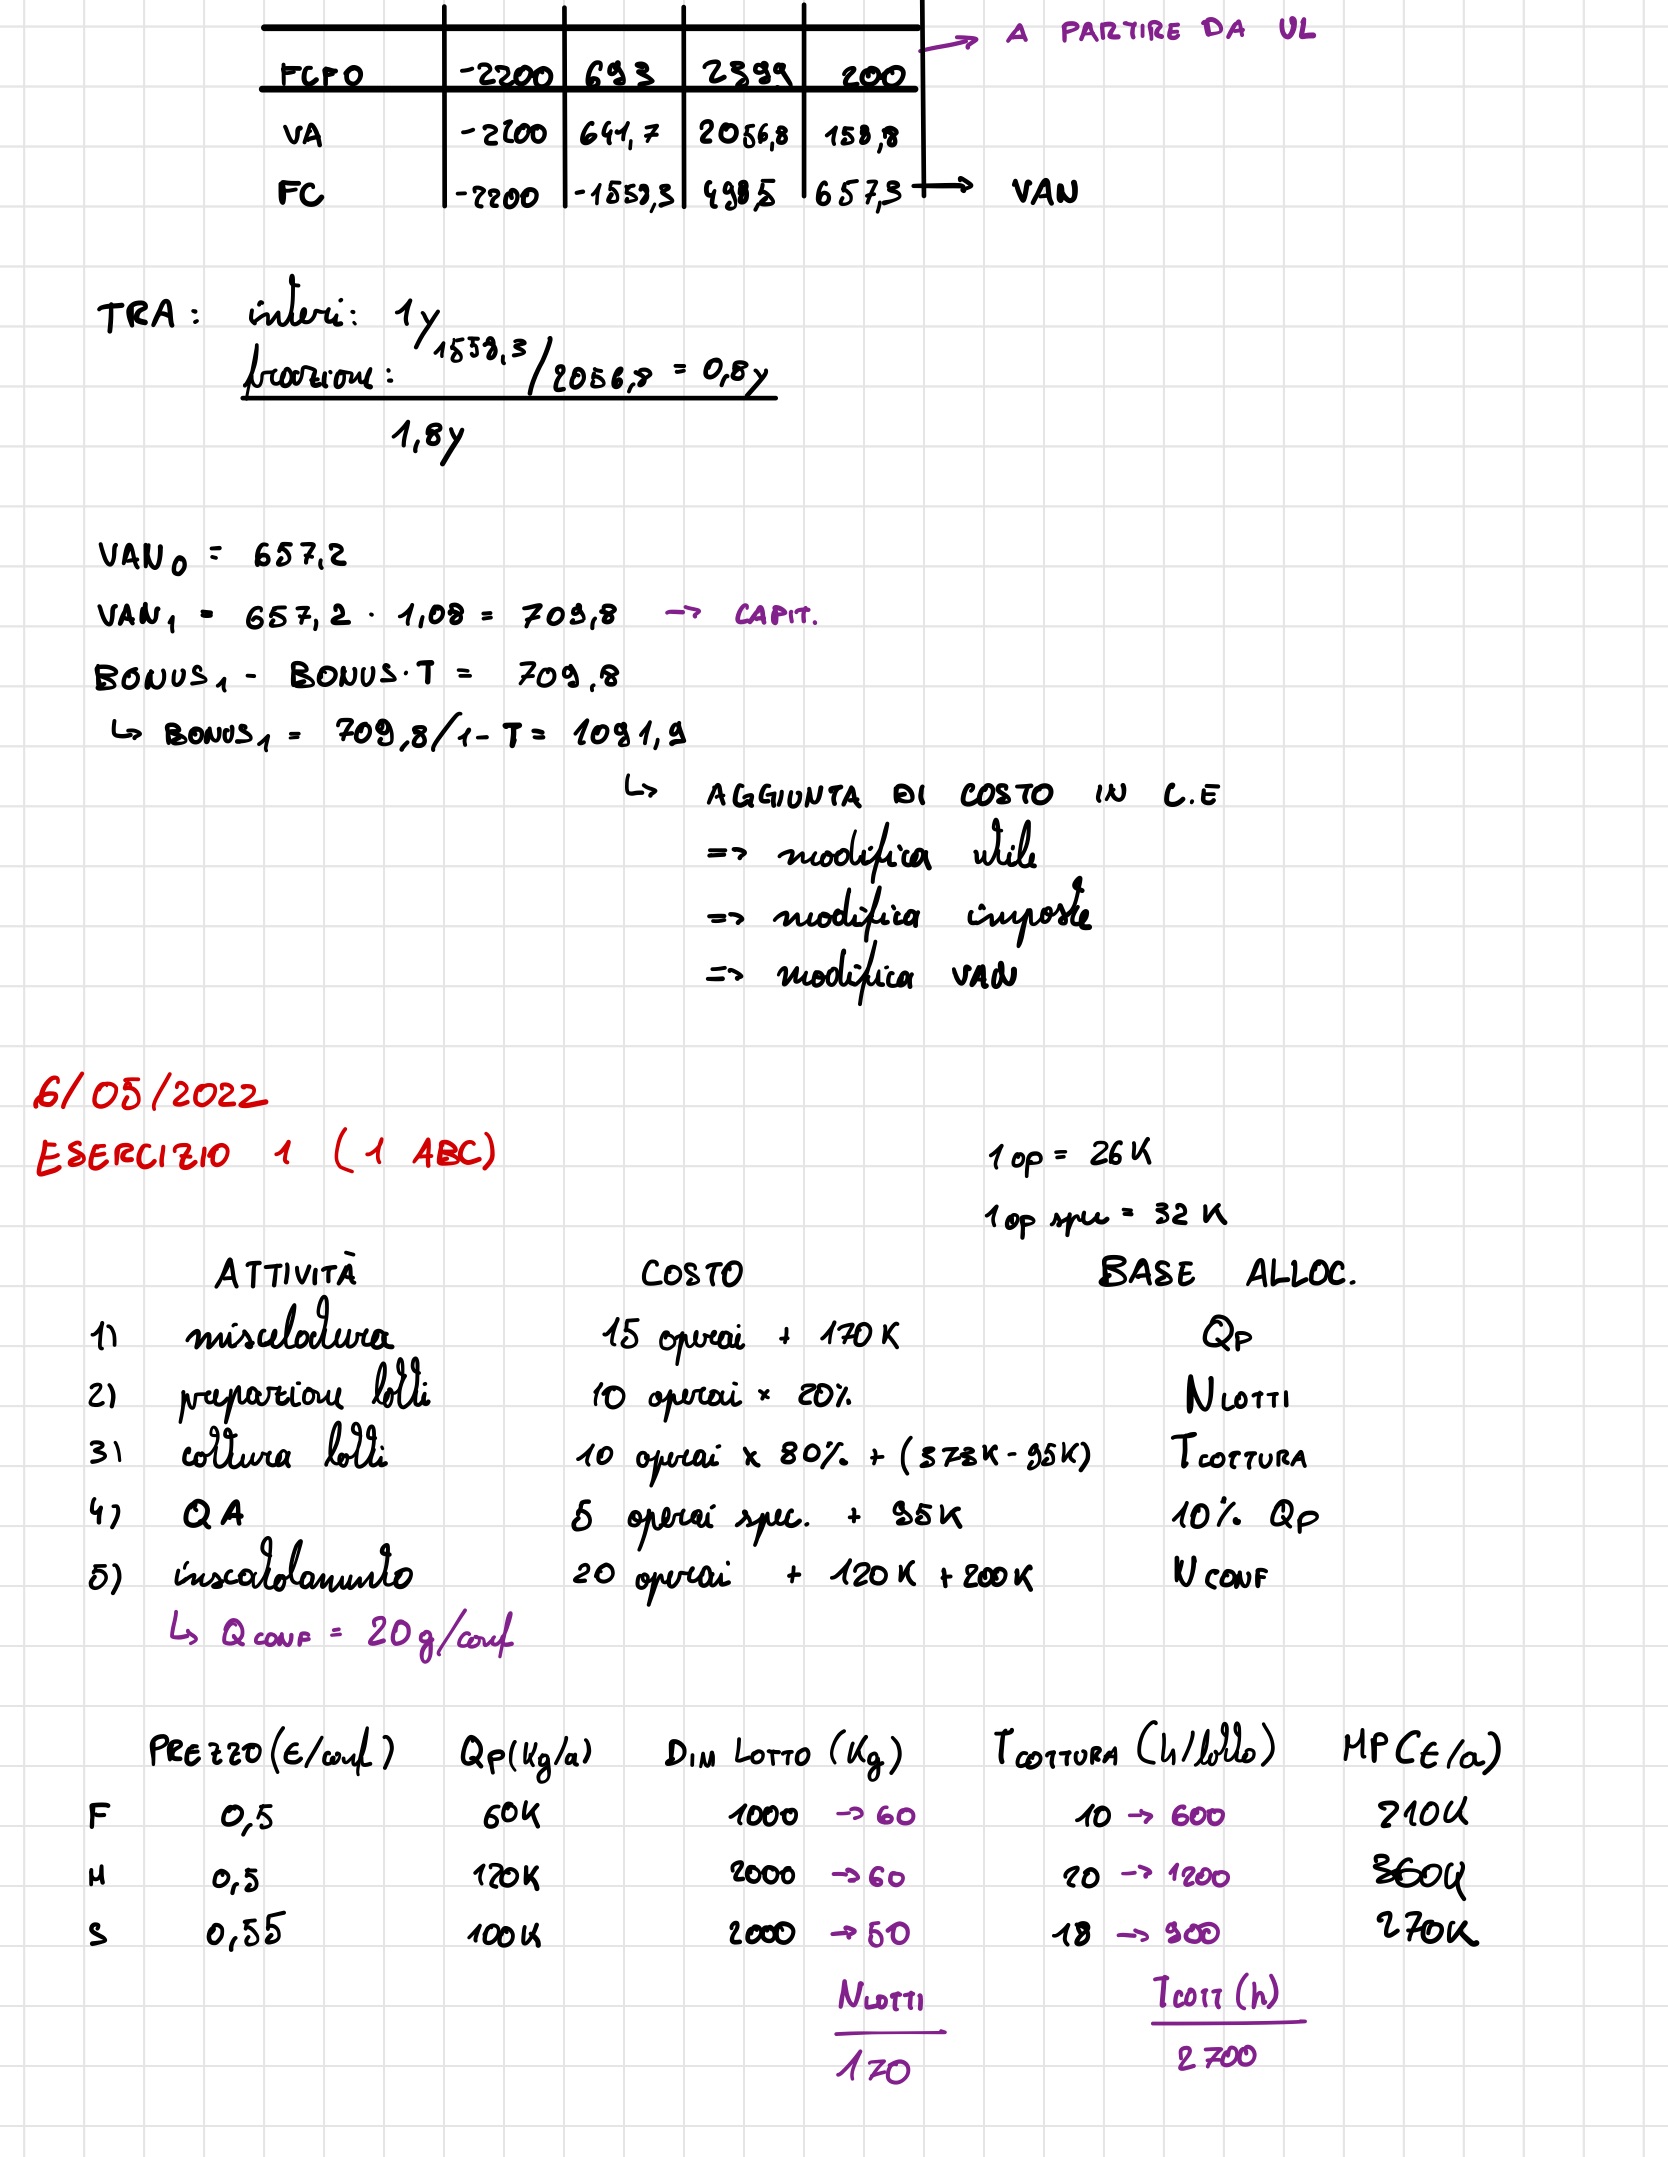 A PARTIRE DA UL
FCFO -2200 693 2399 200
VA -2200 641,7 2056,8 158,8
FC -2200 -1558,3 498,5 657,3 → VAN
TRA: interi: 1y
frazione: 1558,3/2056,8 = 0,8y
1,8y
VAN0 = 657,2
VAN1 = 657,2 · 1,08 = 709,8 → CAPIT.
BONUS1 - BONUS·T = 709,8
↳ BONUS1 = 709,8/1-T = 1091,9
↳ AGGIUNTA DI COSTO IN C.E
=> modifica utile
=> modifica imposte
=> modifica VAN
6/05/2022
ESERCIZIO 1 (1 ABC)
1 op = 26K
1 op spec = 32K
ATTIVITÀ COSTO BASE ALLOC.
1) miscelatura 15 operai + 170K QP
2) preparzione lotti 10 operai × 20% NLOTTI
3) cottura lotti 10 operai × 80% + (373K-95K) TCOTTURA
4) QA 5 operai spec. + 95K 10% QP
5) inscatolamento 20 operai + 120K + 200K NCONF
↳ QCONF = 20g/conf
PREZZO (€/conf.) QP (Kg/a) DIM LOTTO (Kg) TCOTTURA (h/lotto) MP (€/a)
F 0,5 60K 1000 → 60 10 → 600 210K
M 0,5 120K 2000 → 60 20 → 1200 360K
S 0,55 100K 2000 → 50 18 → 900 270K
NLOTTI TCOTT (h)
170 2700